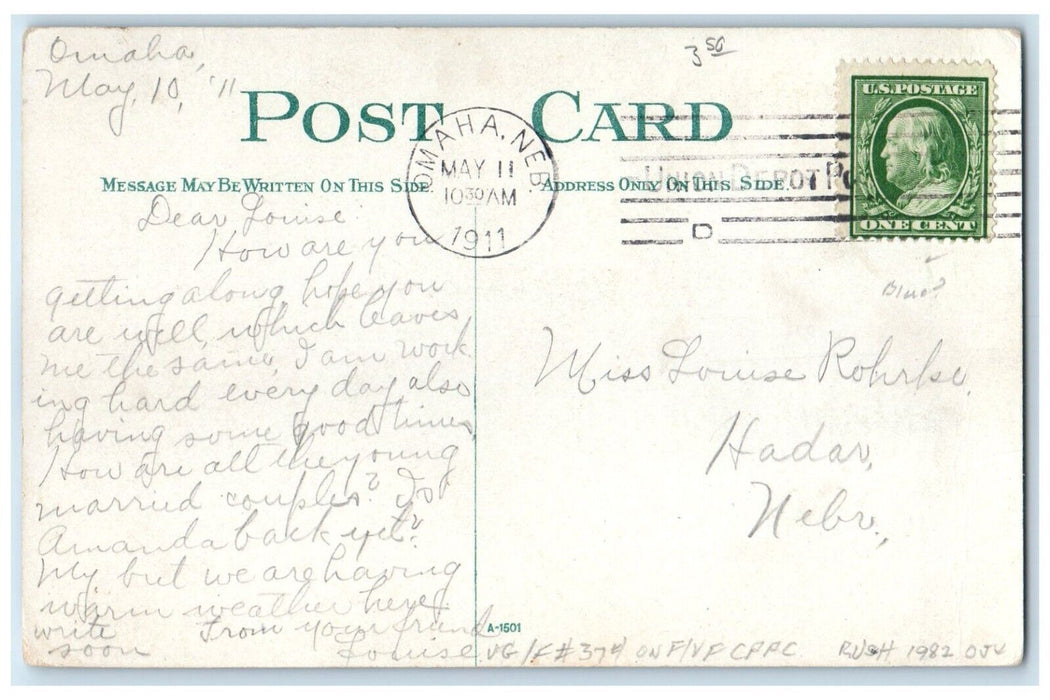 Omaha,
May, 10, '11
3 50
POST CARD
U.S. POSTAGE
ONE CENT
OMAHA, NEB.
MAY 11
10 30 AM
1911
UNION DEPOT
D
MESSAGE MAY BE WRITTEN ON THIS SIDE.
ADDRESS ONLY ON THIS SIDE.
Dear Louise
How are you
getting along, hope you
are well, which leaves
me the same, I am work
ing hard every day also
having some good times
How are all the young
married couples? Is
Amanda back yet?
My but we are having
warm weather here,
write From your friend
soon Louise
Miss Louise Rohrke,
Hadar,
Nebr.,
A-1501
VG/F #374 ON F/VF CPPC RUSH 1982